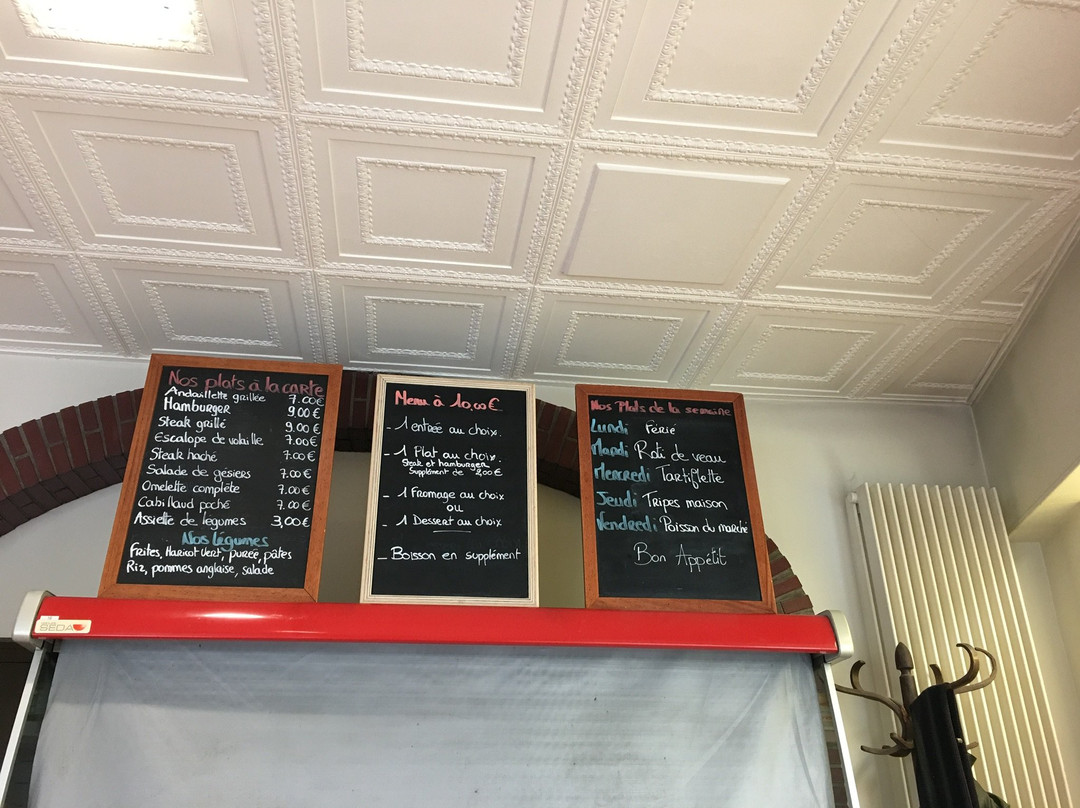 Nos plats à la carte
Andouillette grillée 7.00€
Hamburger 9,00€
Steak grillé 9,00€
Escalope de volaille 7.00€
Steak haché 7.00€
Salade de gésiers 7.00€
Omelette complète 7.00€
Cabillaud poché 7.00€
Assiette de légumes 3,00€
Nos légumes
Frites, Haricot Vert, purée, pâtes
Riz, pommes anglaise, salade
Menu à 10,00€
- 1 entrée au choix.
- 1 Plat au choix.
Steak et hamburger
Supplément de 2,00€
- 1 Fromage au choix
ou
- 1 Dessert au choix
- Boisson en supplément
Nos Plats de la semaine
Lundi Férié
Mardi Roti de veau
Mercredi Tartiflette
Jeudi Tripes maison
Vendredi Poisson du marché
Bon Appétit
SEDA